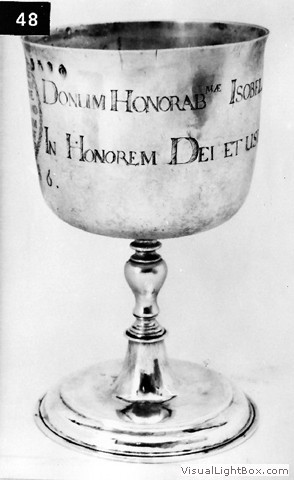 48
DONUM HONORABMÆ ISOBEL
IN HONOREM DEI ET US
6.
VisualLightBox.com